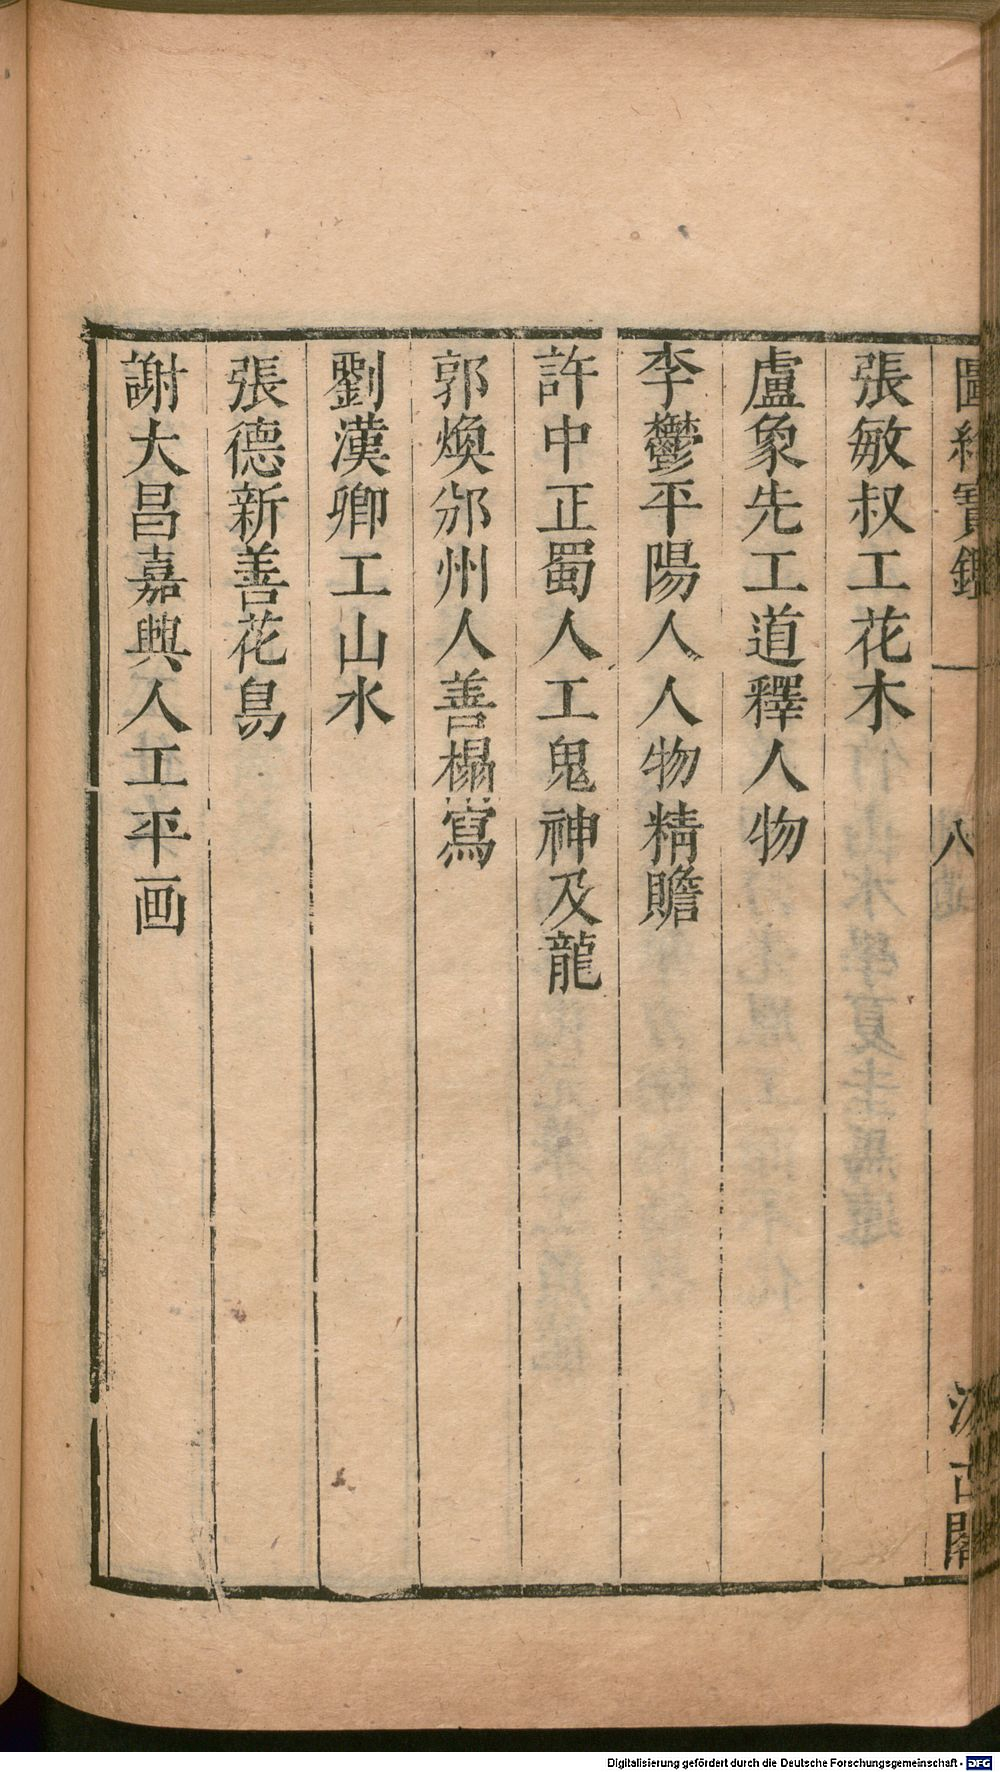 圖繪寶鑑 一 八 汲古閣
張敏叔工花木
盧象先工道釋人物
李鬱平陽人人物精贍
許中正蜀人工鬼神及龍
郭煥邠州人善榻寫
劉漢卿工山水
張德新善花鳥
謝大昌嘉興人工平画
Digitalisierung gefördert durch die Deutsche Forschungsgemeinschaft - DFG